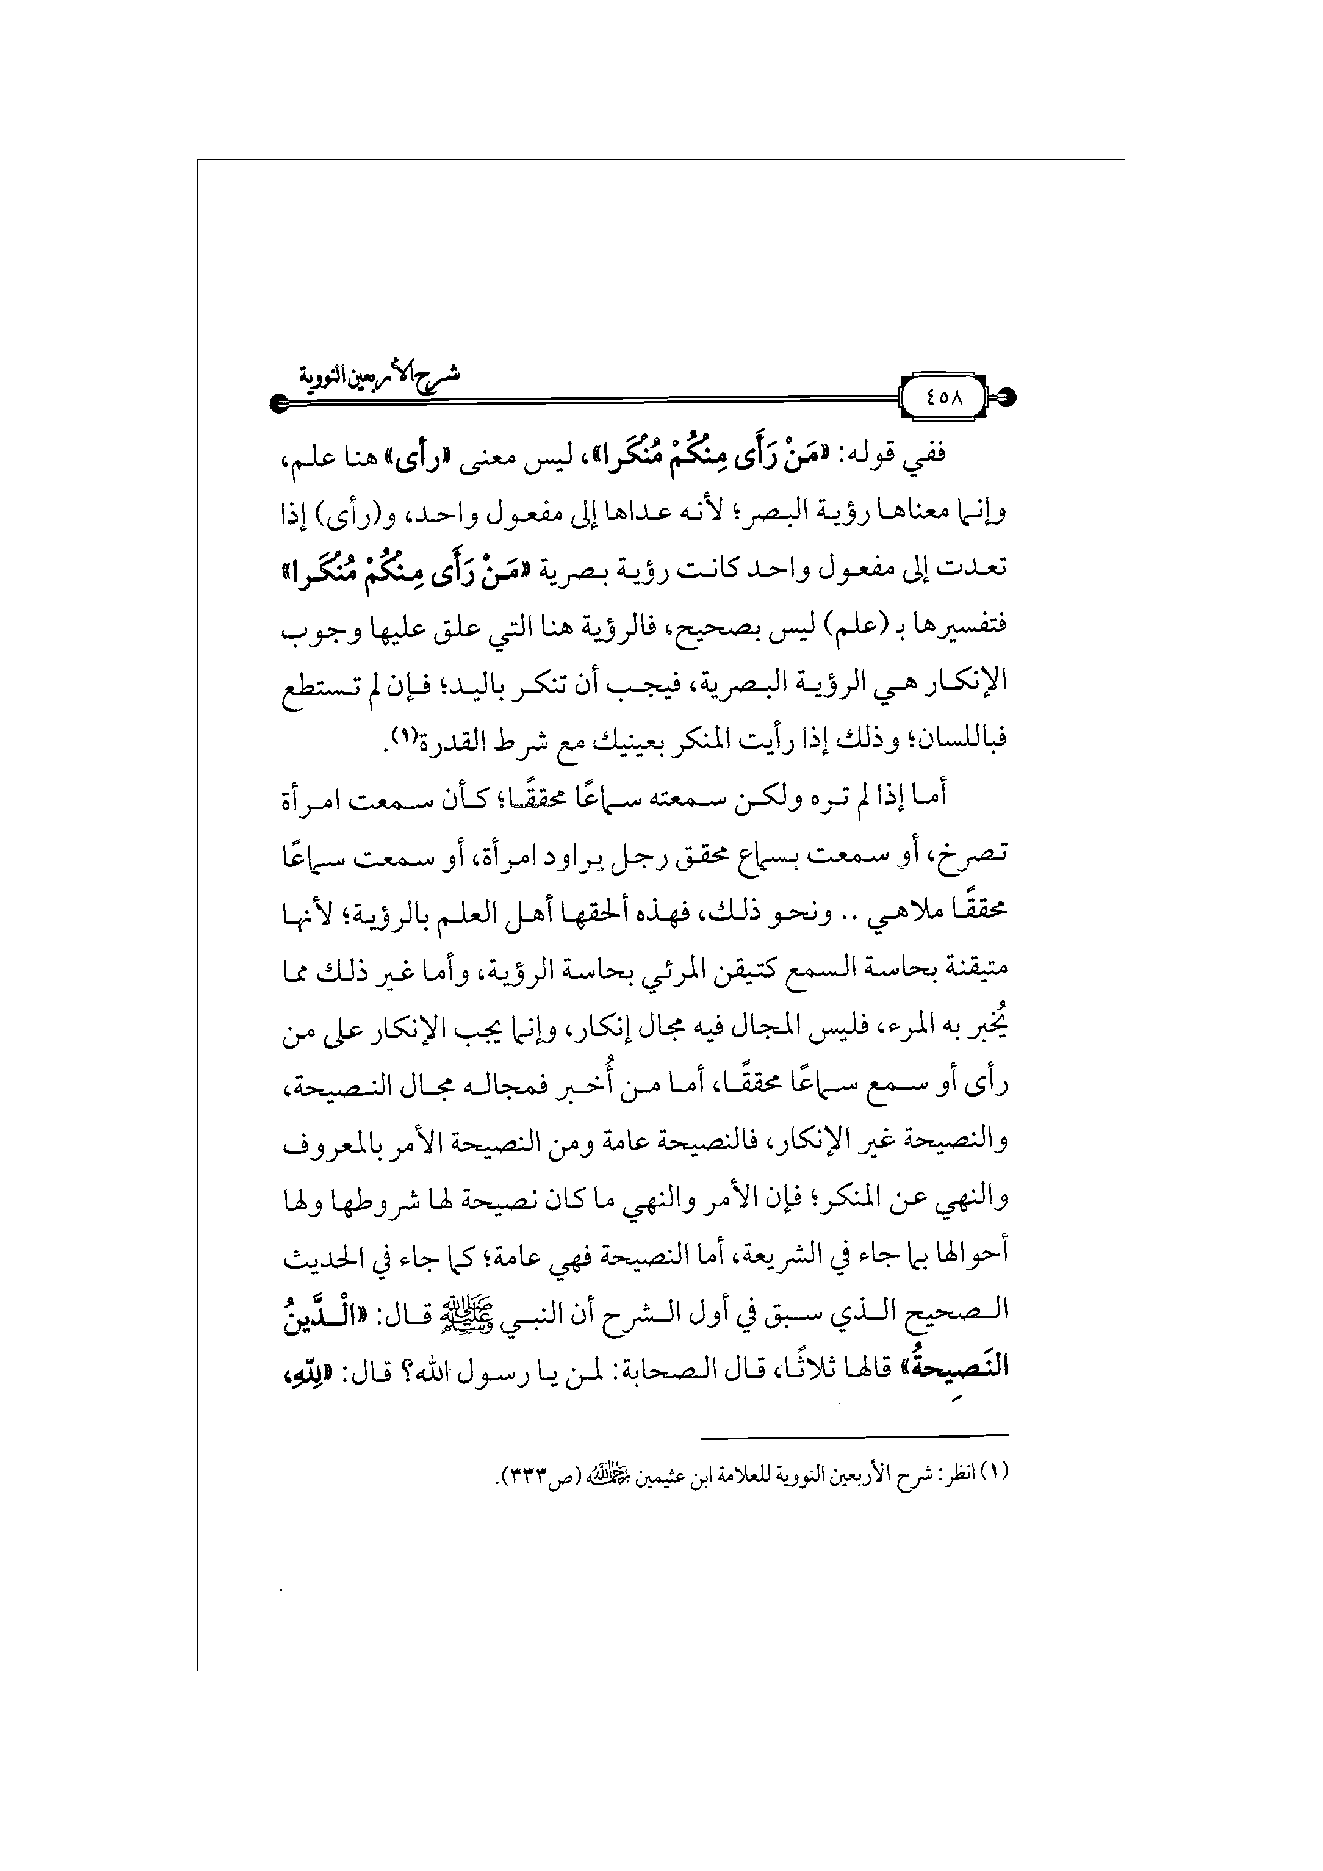 شرح الأربعين النووية
٤٥٨
ففي قوله: «مَنْ رَأَى مِنكُمْ مُنْكَرا»، ليس معنى «رأى» هنا علم،
وإنما معناها رؤية البصر؛ لأنه عداها إلى مفعول واحد، و(رأى) إذا
تعدت إلى مفعول واحد كانت رؤية بصرية «مَنْ رَأَى مِنكُمْ مُنْكَرا»
فتفسيرها بـ (علم) ليس بصحيح، فالرؤية هنا التي علق عليها وجوب
الإنكار هي الرؤية البصرية، فيجب أن تنكر باليد؛ فإن لم تستطع
فباللسان؛ وذلك إذا رأيت المنكر بعينيك مع شرط القدرة(١).
أما إذا لم تره ولكن سمعته سماعًا محققًا؛ كأن سمعت امرأة
تصرخ، أو سمعت بسماع محقق رجل يراود امرأة، أو سمعت سماعًا
محققًا ملاهي .. ونحو ذلك، فهذه ألحقها أهل العلم بالرؤية؛ لأنها
متيقنة بحاسة السمع كتيقن المرئي بحاسة الرؤية، وأما غير ذلك مما
يُخبر به المرء، فليس المجال فيه مجال إنكار، وإنما يجب الإنكار على من
رأى أو سمع سماعًا محققًا، أما من أُخبر فمجاله مجال النصيحة،
والنصيحة غير الإنكار، فالنصيحة عامة ومن النصيحة الأمر بالمعروف
والنهي عن المنكر؛ فإن الأمر والنهي ما كان نصيحة لها شروطها ولها
أحوالها بما جاء في الشريعة، أما النصيحة فهي عامة؛ كما جاء في الحديث
الصحيح الذي سبق في أول الشرح أن النبي ﷺ قال: «الْدَّينُ
النَصِيحةُ» قالها ثلاثًا، قال الصحابة: لمن يا رسول الله؟ قال: «لِلهِ،
(١) انظر: شرح الأربعين النووية للعلامة ابن عثيمين رحمه الله (ص٣٣٣).